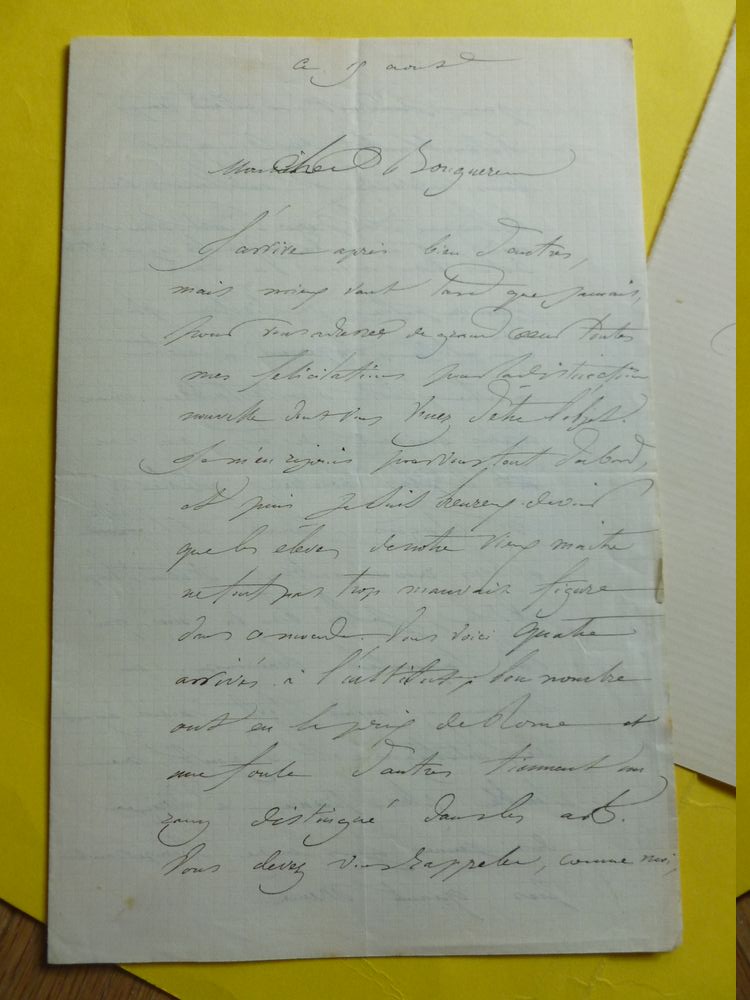 ce 19 aout
Mon cher Bouguereau
J'arrive après bien d'autres,
mais mieux vaut tard que jamais,
pour vous adresser de grand coeur toutes
mes félicitations pour la distinction
nouvelle dont vous venez d'être l'objet.
Je m'en réjouis pour vous tout d'abord,
et puis je suis heureux de voir
que les élèves de notre vieux maitre
ne font pas trop mauvaise figure
dans ce monde. Vous voici quatre
arrivés à l'institut, bon nombre
ont eu le prix de Rome et
une foule d'autres tiennent un
rang distingué dans les arts.
Vous devez vous rappeler, comme moi,